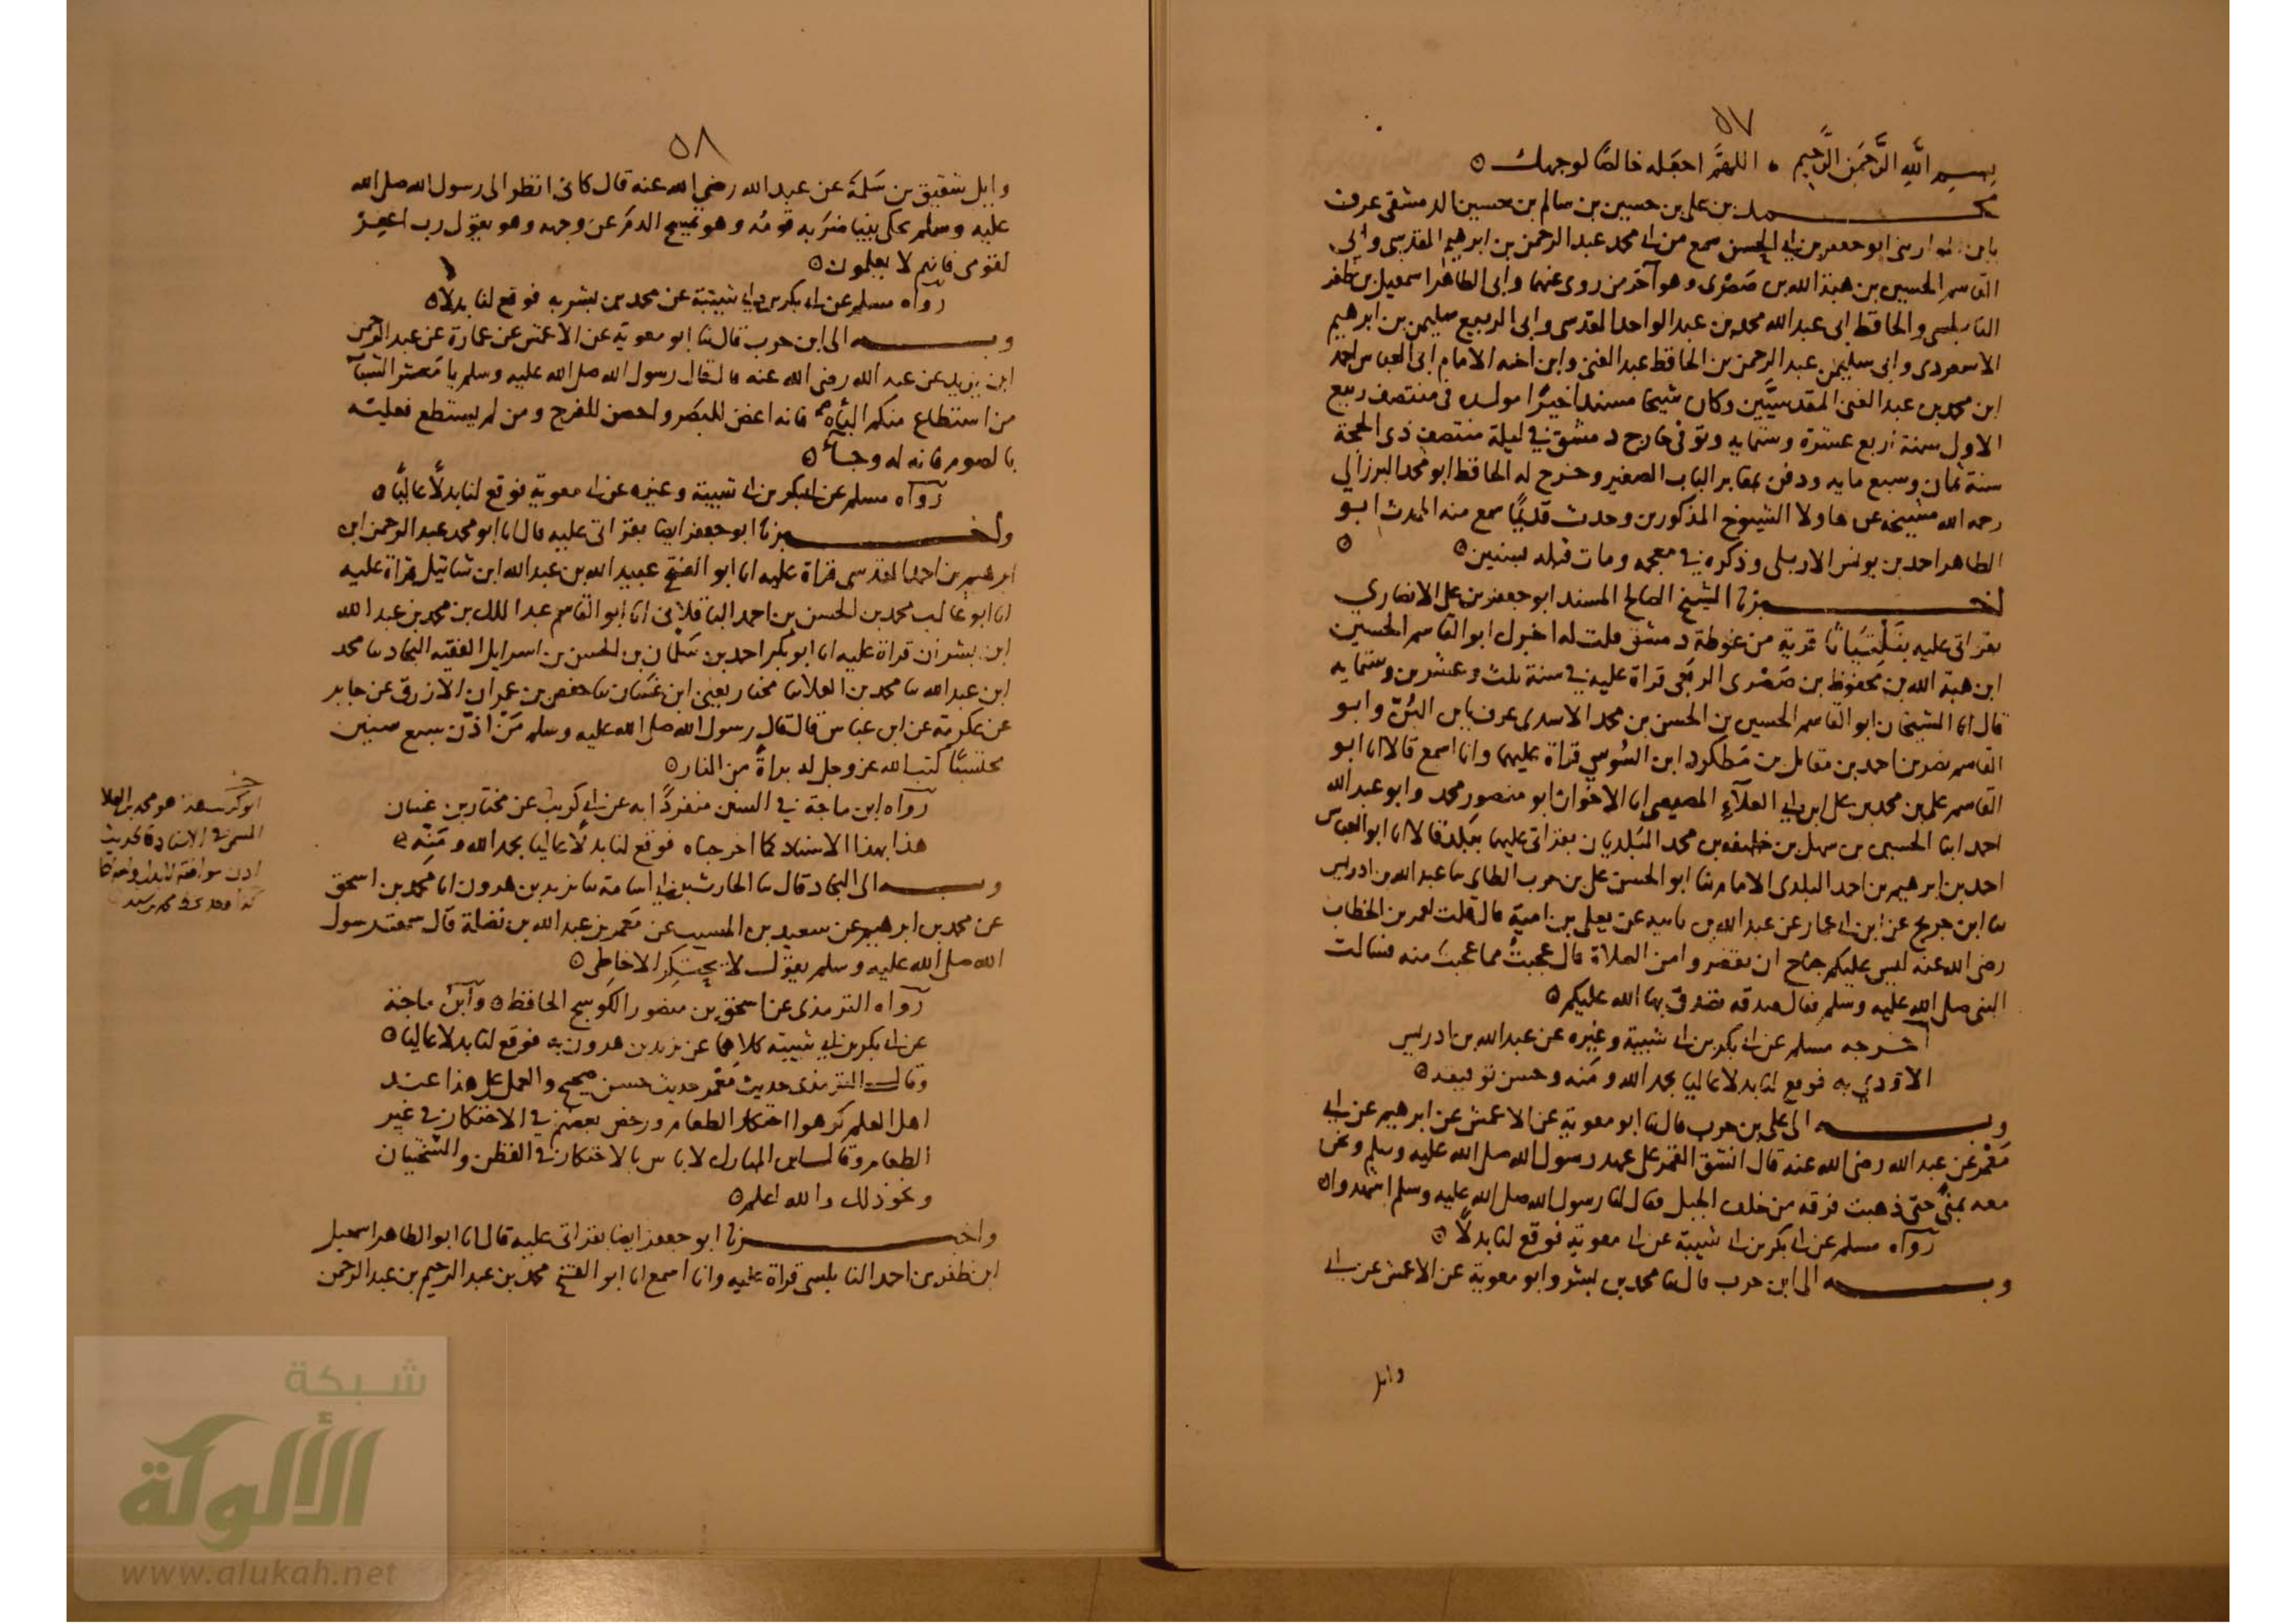 ٥٧
بسم الله الرحمن الرحيم ۰ اللهم اجعله خالصًا لوجهك ٥
محمد بن علي بن حسين بن سالم بن حسين الدمشقي عرف
ابو جعفر بن ابي الحسن سمع من ابي محمد عبد الرحمن بن ابرهيم المقدسي وابي
القاسم الحسين بن هبة الله بن صصرى وهو آخر من روى عنهما وابى الطاهر اسمعيل بن ظفر
النابلسي والحافظ ابى عبد الله محمد بن عبد الواحد المقدسى وابى الربيع سليمن بن ابرهيم
الاسعردى وابى سليمن عبد الرحمن بن الحافظ عبد الغنى وابن اخيه الامام ابى العباس احمد
ابن محمد بن عبد الغنى المقدسيَّين وكان شيخا مسندا خيرًا مولده في منتصف ربيع
الاول سنة اربع عشرة وستمايه وتوفى خارج دمشق في ليلة منتصف ذى الحجة
سنة ثمان وسبع مايه ودفن بمقابر الباب الصغير وخرج له الحافظ ابو محمد البرزالي
رحمه الله مشيخه عن هاولا الشيوخ المذكورين وحدث قديمًا سمع منه المحدث ابو
الطاهر احمد بن يونس الاربلى وذكره في معجمه ومات قبله بسنين ٥ ٥
اخبرنا الشيخ الصالح المسند ابو جعفر بن على الانصاري
بقراتى عليه قرية من غوطة دمشق قلت له اخبرك ابو القاسم الحسين
ابن هبة الله بن محفوظ بن صصرى الربعى قراة عليه في سنة ثلث وعشرين وستمايه
قال انا الشيخان ابو القاسم الحسين بن الحسن بن محمد الاسدى عرف بابن البُنّ وابو
القاسم نصر بن احمد بن مقاتل بن مطكود ابن السُوسي قراة عليهما وانا اسمع قالا انا ابو
القاسم على بن محمد بن على ابن ابي العلآءِ المصيصى انا الاخوان ابو منصور محمد وابو عبد الله
احمد ابنا الحسين بن سهل بن خليفه بن محمد البَلديان بقراتى عليهما ببَلَد قالا انا ابو العباس
احمد بن ابرهيم بن احمد البلدى الامام ثنا ابو الحسن على بن حرب الطاى ثنا عبد الله بن ادريس
ثنا ابن جريج عن ابن ابى عمار عن عبد الله بن بابيه عن يعلى بن امية قال قلت لعمر بن الخطاب
رضى الله عنه ليس عليكم جناح ان تقصروا من الصلاة قال عجبتُ مما عجبتَ منه فسالت
النبى صلى الله عليه وسلم فقال صدقه تصدق بها الله عليكم ٥
اخرجه مسلم عن ابى بكر بن ابى شيبة وغيره عن عبد الله بن ادريس
الاودي به فوقع لنا بدلا عاليا بحمد الله ومَنه وحسن توفيقه ٥
وبـــه الى على بن حرب قال ثنا ابو معوية عن الاعمش عن ابرهيم عن ابي
مَعْمَر عن عبد الله رضى الله عنه قال انشق القمر على عهد رسول الله صلى الله عليه وسلم ونحن
معه بمنًى حتى ذهبت فرقه من خلف الجبل فقال لنا رسول الله صلى الله عليه وسلم اشهدوا ٥
رَواه مسلم عن ابى بكر بن ابى شيبة عن ابى معوية فوقع لنا بدلًا ٥
وبـــه الى ابن حرب قال ثنا محمد بن بشر وابو معوية عن الاعمش عن ابي
وايل
٥٨
وايل شقيق بن سَلمَة عن عبد الله رضي الله عنه قال كانى انظر الى رسول الله صلى الله
عليه وسلم يحكى نبيًا ضرَبه قومُه وهو يمسح الدمَ عن وجهه وهو يقول رب اغفِرْ
لقومى فانهم لا يعلمون ٥
رَواه مسلم عن ابى بكر بن ابي شيبة عن محمد بن بشر به فوقع لنا بدلا ٥
وبـــه الى ابن حرب قال ثنا ابو معوية عن الاعمش عن عمارة عن عبد الرحمن
ابن يزيد عن عبد الله رضى الله عنه قال قال رسول الله صلى الله عليه وسلم يا مَعشر الشباب
من استطاع منكم الباه فانه اغض للبصَر واحصن للفرج ومن لم يستطع فعليه
بالصوم فانه له وجآء ٥
رَواه مسلم عن ابى بكر بن ابى شيبة وغيره عن ابى معوية فوقع لنا بدلًا عاليًا ٥
واخبرنا ابو جعفر ايضا بقراتى عليه قال انا ابو محمد عبد الرحمن ابن
ابرهيم بن احمد المقدسى قراة عليه انا ابو الفتح عبيد الله بن عبد الله ابن شاتيل قراة عليه
انا ابو غالب محمد بن الحسن بن احمد الباقلاني انا ابو القاسم عبد الملك بن محمد بن عبد الله
ابن بشران قراة عليه انا ابو بكر احمد بن سَلمان بن الحسن بن اسرايل الفقيه النجاد ثنا محمد
ابن عبد الله ثنا محمد بن العلا ثنا مختار يعنى ابن غسَّان ثنا حفص بن عمران الازرق عن جابر
عن عكرمة عن ابن عباس قال قال رسول الله صلى الله عليه وسلم مَنْ اذّن سبع سنين
محتسبًا كتب الله عز وجل له براةً من النار ٥
رَوَاه ابن ماجة في السنن منفردًا به عن ابي كريب عن مختار بن غسان
هذا بهذا الاسناد كما اخرجناه فوقع لنا بدلًا عاليا بحمد الله ومَنّه ٥
وبـــه الى النجاد قال ثنا الحارث بن ابي اسامة ثنا يزيد بن هرون انا محمد بن اسحق
عن محمد بن ابرهيم عن سعيد بن المسيب عن مَعْمر بن عبد الله بن نضلة قال سمعت رسول
الله صلى الله عليه وسلم يقول لا يحتكِرُ الا خاطِى ٥
رَواه الترمذى عن اسحق بن منصور الكوسج الحافظ ٥ وابن ماجة
عن ابى بكر بن ابي شيبة كلاهما عن يزيد بن هرون به فوقع لنا بدلا عاليا ٥
وقال الترمذى حديث مَعْمَر حديث حسن صحيح والعمل على هذا عند
اهل العلم كرهوا احتكار الطعام ورخص بعضهم في الاحتكار في غير
الطعام وقال ابن المبارك لا باس بالاحتكار في القطن والسّختيان
ونحو ذلك والله اعلم ٥
واخبرنا ابو جعفر ايضا بقراتى عليه قال انا ابو الطاهر اسمعيل
ابن ظفر بن احمد النابلسى قراة عليه وانا اسمع انا ابو الفتح محمد بن عبد الرحيم بن عبد الرحمن
هو محمد بن العلا
شبكة
الألوكة
www.alukah.net